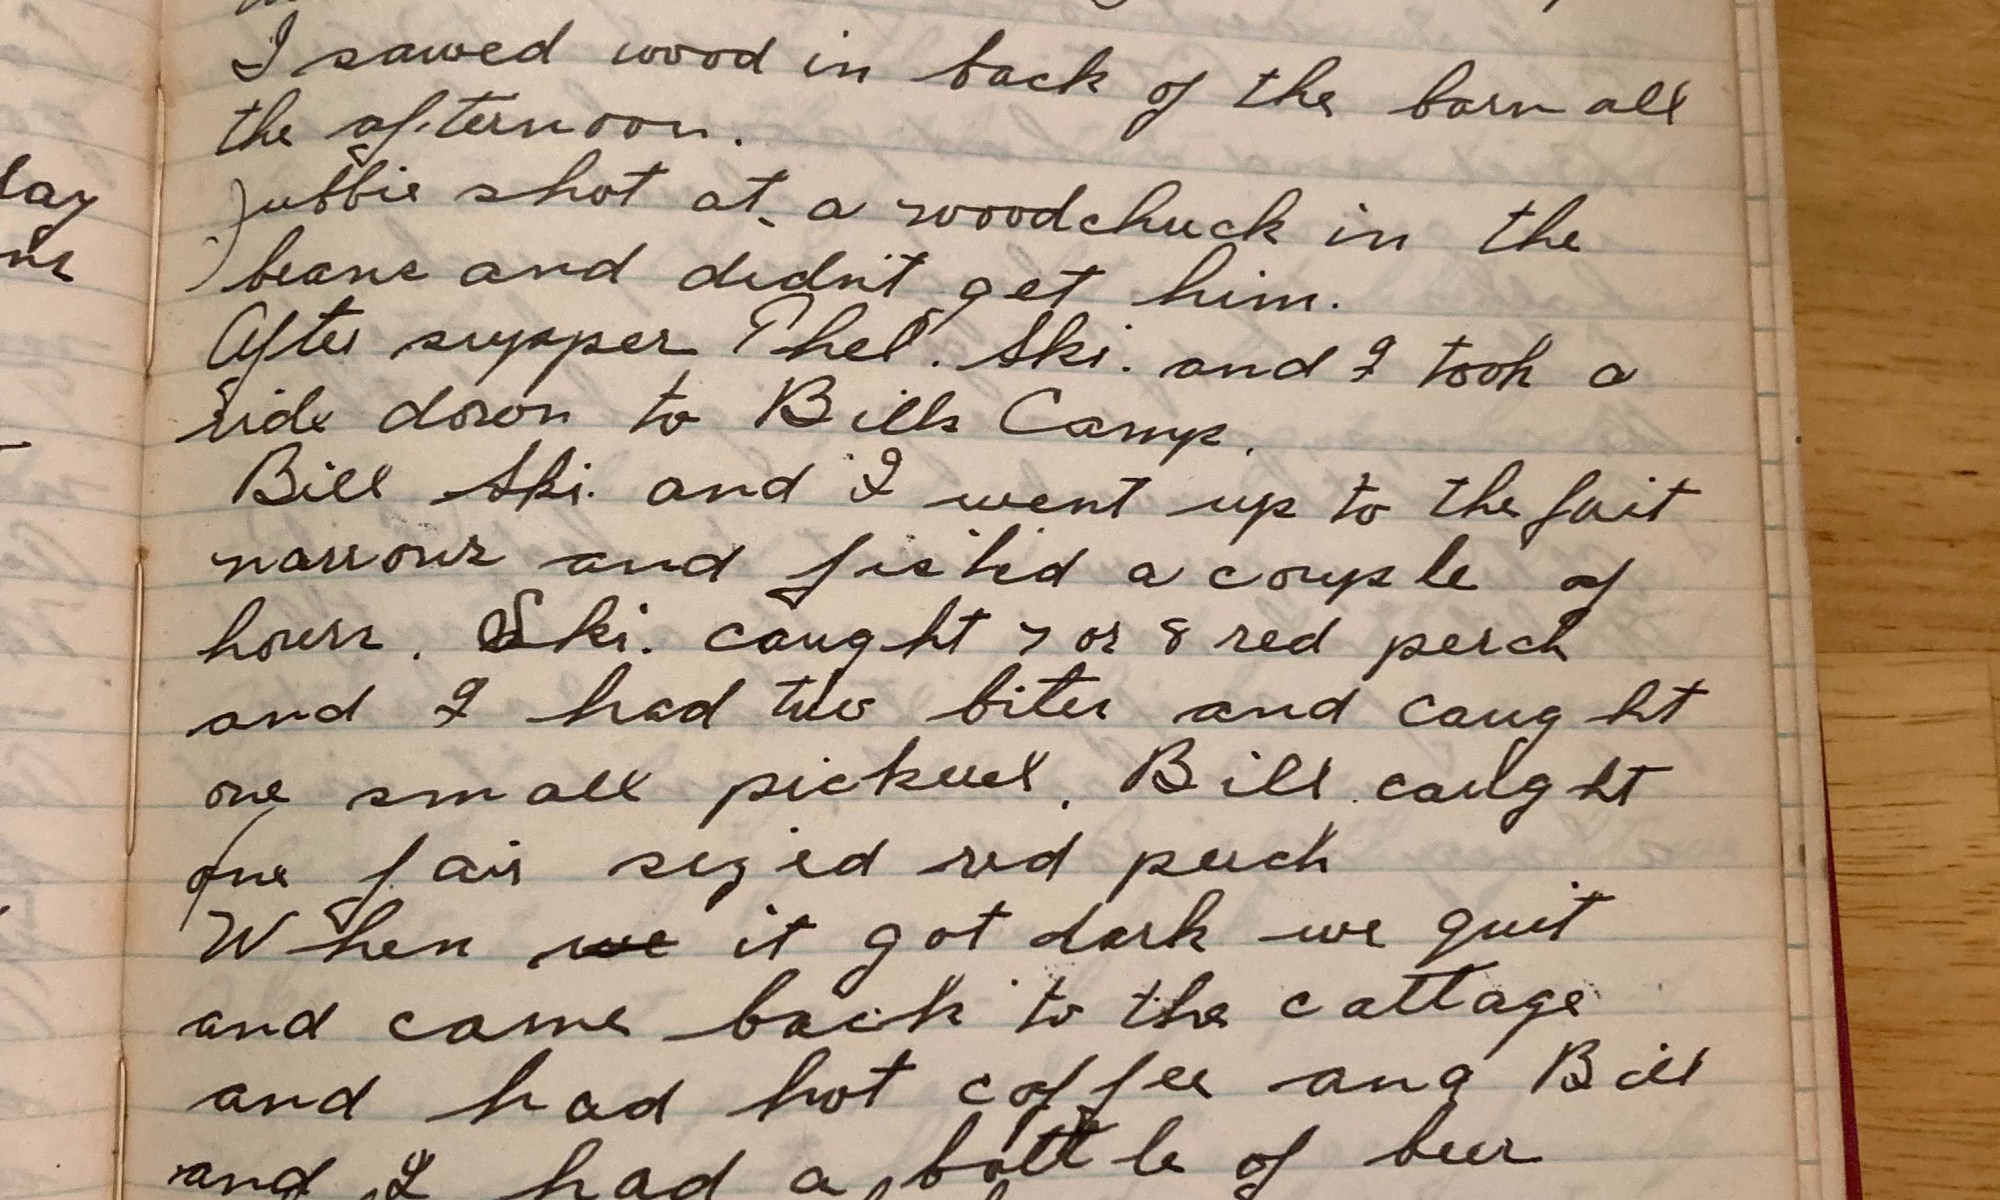 I sawed wood in back of the barn all
the afternoon.
Jubbie shot at a woodchuck in the
beans and didn't get him.
After supper Phel. Ski. and I took a
ride down to Bills Camp.
Bill Ski. and I went up to the
narrows and fished a couple of
hours. Ski. caught 7 or 8 red perch
and I had two bites and caught
one small pickerel. Bill caught
one fair sized red perch
When we it got dark we quit
and came back to the cottage
and had hot coffee and Bill
and I had a bottle of beer